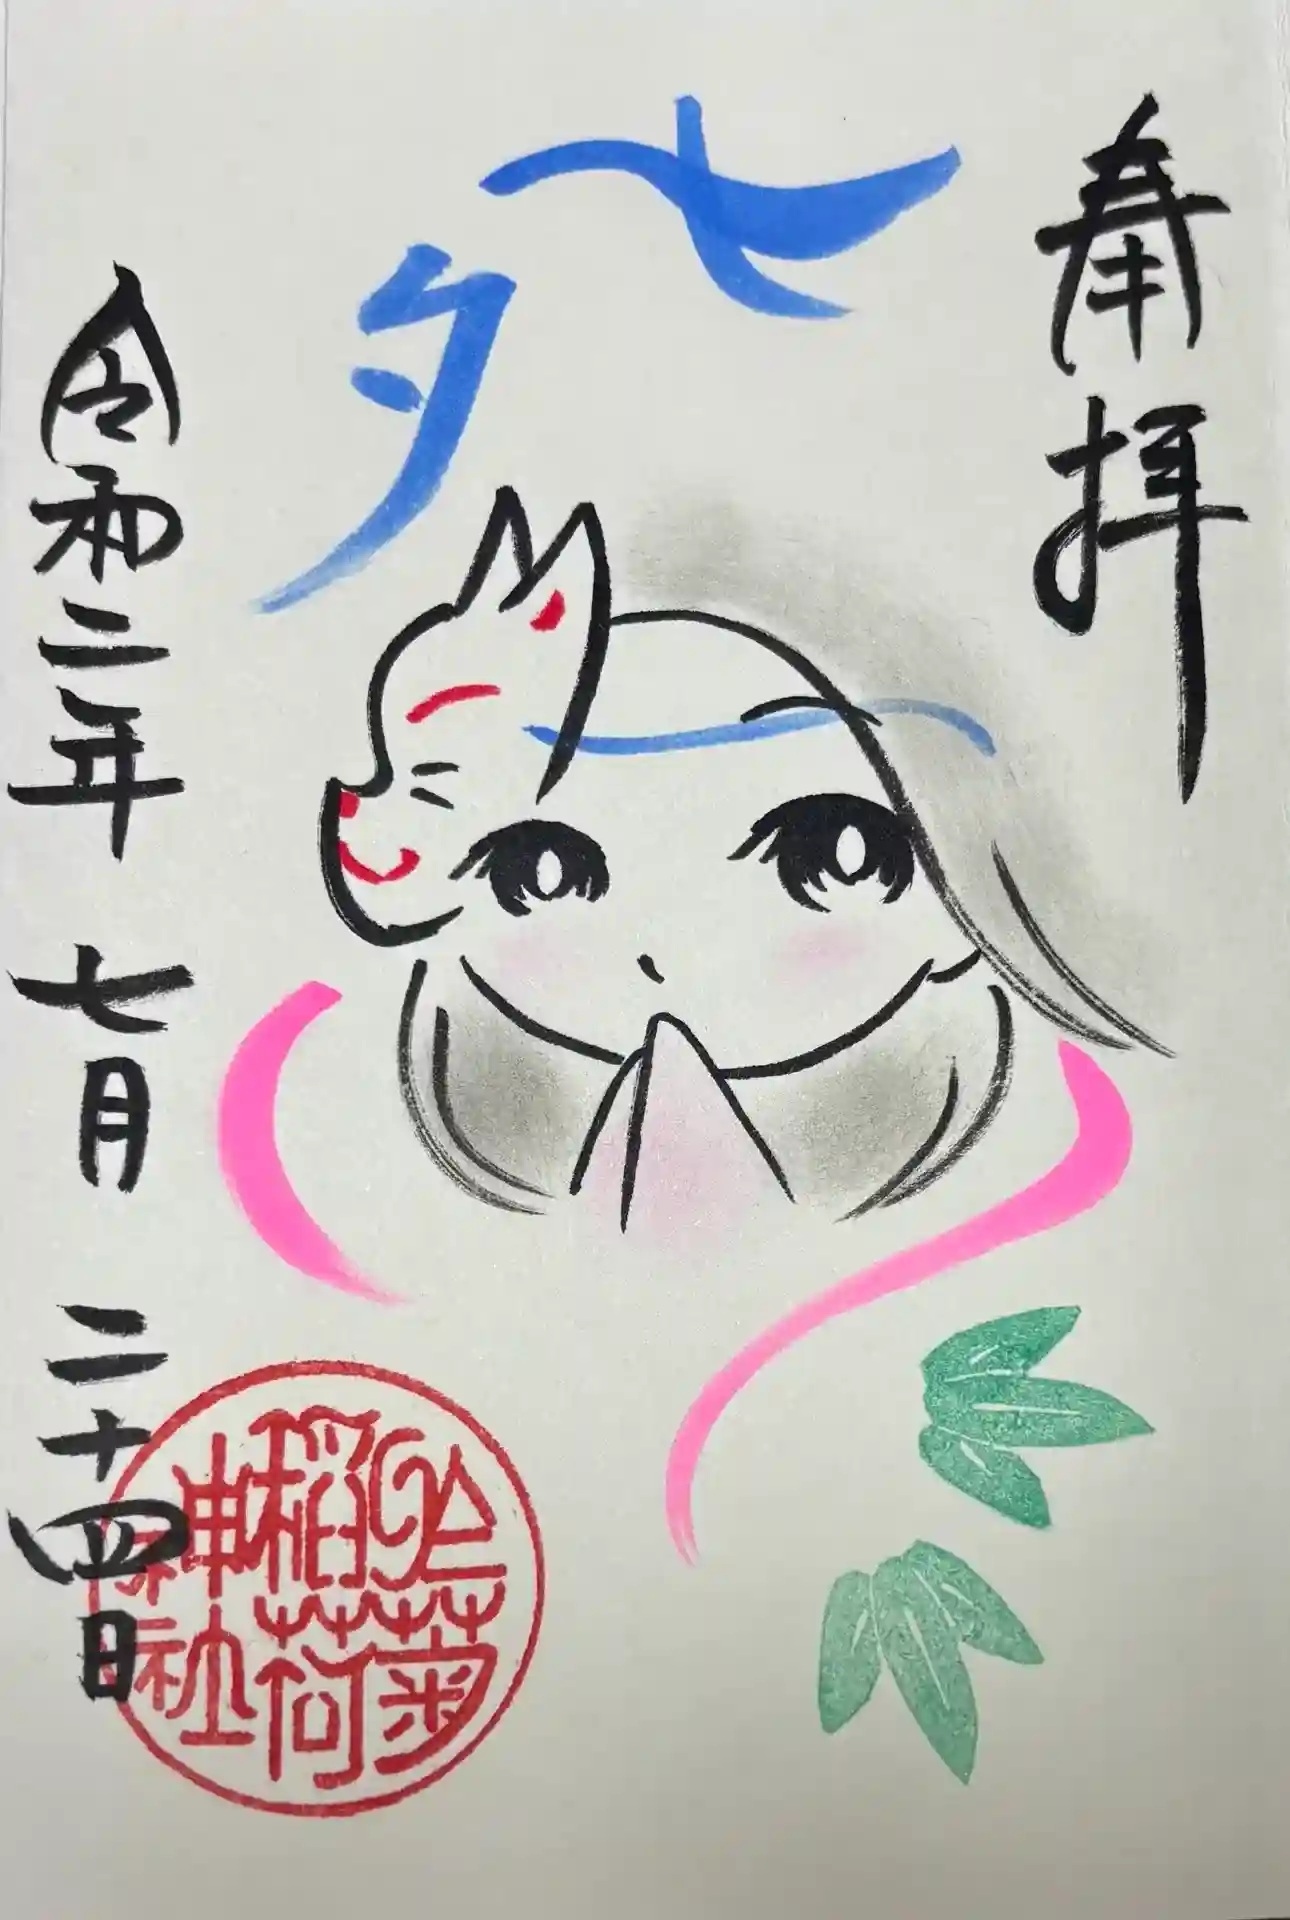 奉拝
七夕
令和二年七月二十四日
於菊
稲荷
神社